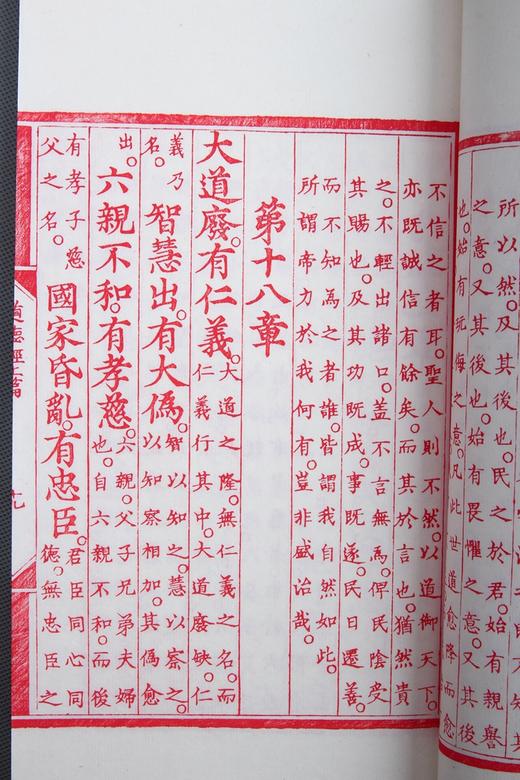 所以然。及其後也。民之於君。始有親譽
之意。又其後也。始有畏懼之意。又其後
也。始有玩侮之意。凡此世道愈降而愈
不信之者耳。聖人則不然。以道御天下。
亦既誠信有餘矣。而其於言也。猶然貴
之。不輕出諸口。蓋不言無為。俾民陰受
其賜也。及其功既成。事既遂。民日遷善。
而不知為之者誰。皆謂我自然如此。
所謂帝力於我何有。豈非盛治哉。
第十八章
大道廢。有仁義。大道之隆。無仁義之名。而仁義行其中。大道廢缺。仁
義乃名。智慧出。有大偽。智以知之。慧以察之。以知察相加。其偽愈
出。六親不和。有孝慈。六親。父子兄弟夫婦也。自六親不和。而後
有孝子慈父之名。國家昏亂。有忠臣。君臣同心同德。無忠臣之